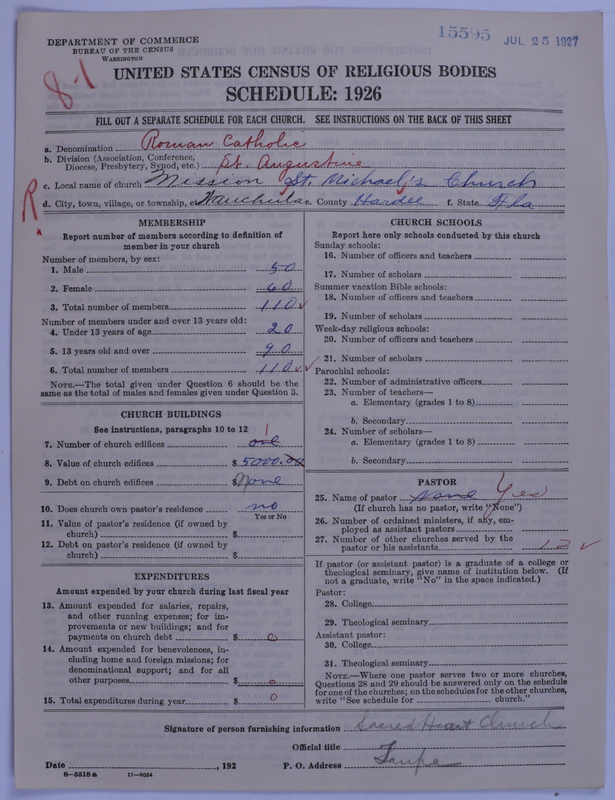 15595 JUL 25 1927
DEPARTMENT OF COMMERCE
BUREAU OF THE CENSUS
WASHINGTON
8-1
UNITED STATES CENSUS OF RELIGIOUS BODIES
SCHEDULE: 1926
FILL OUT A SEPARATE SCHEDULE FOR EACH CHURCH. SEE INSTRUCTIONS ON THE BACK OF THIS SHEET
a. Denomination Roman Catholic
b. Division (Association, Conference,
Diocese, Presbytery, Synod, etc.) St. Augustine
c. Local name of church Mission St. Michael's Church
R.
d. City, town, village, or township, etc Wauchula e. County Hardee f. State Fla
MEMBERSHIP
Report number of members according to definition of
member in your church
Number of members, by sex:
1. Male 50
2. Female 60
3. Total number of members 110 ✓
Number of members under and over 13 years old:
4. Under 13 years of age 20
5. 13 years old and over 90
6. Total number of members 110 ✓ ✓
NOTE.—The total given under Question 6 should be the
same as the total of males and females given under Question 3.
CHURCH BUILDINGS
See instructions, paragraphs 10 to 12
7. Number of church edifices 1
8. Value of church edifices $ 5000.00
9. Debt on church edifices $ None
10. Does church own pastor's residence no
Yes or No
11. Value of pastor's residence (if owned by
church) $
12. Debt on pastor's residence (if owned by
church) $
EXPENDITURES
Amount expended by your church during last fiscal year
13. Amount expended for salaries, repairs,
and other running expenses; for im-
provements or new buildings; and for
payments on church debt $ 0
14. Amount expended for benevolences, in-
cluding home and foreign missions; for
denominational support; and for all
other purposes $ 0
15. Total expenditures during year $ 0
CHURCH SCHOOLS
Report here only schools conducted by this church
Sunday schools:
16. Number of officers and teachers
17. Number of scholars
Summer vacation Bible schools:
18. Number of officers and teachers
19. Number of scholars
Week-day religious schools:
20. Number of officers and teachers
21. Number of scholars
Parochial schools:
22. Number of administrative officers
23. Number of teachers—
a. Elementary (grades 1 to 8)
b. Secondary
24. Number of scholars—
a. Elementary (grades 1 to 8)
b. Secondary
PASTOR
25. Name of pastor None Yes
(If church has no pastor, write "None")
26. Number of ordained ministers, if any, em-
ployed as assistant pastors
27. Number of other churches served by the
pastor or his assistants 12 ✓
If pastor (or assistant pastor) is a graduate of a college or
theological seminary, give name of institution below. (If
not a graduate, write "No" in the space indicated.)
Pastor:
28. College
29. Theological seminary
Assistant pastor:
30. College
31. Theological seminary
NOTE.—Where one pastor serves two or more churches,
Questions 28 and 29 should be answered only on the schedule
for one of the churches; on the schedules for the other churches,
write "See schedule for church."
Signature of person furnishing information Sacred Heart Church
Official title
Date , 192 P. O. Address Tampa
8-5518a 11-9034